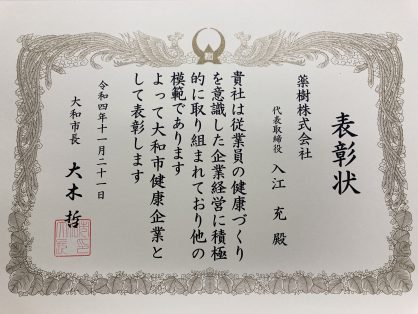 表彰状
薬樹株式会社
代表取締役 入江 充 殿
貴社は従業員の健康づくり
を意識した企業経営に積極
的に取り組まれており他の
模範であります
よって大和市健康企業と
して表彰します
令和四年十一月二十一日
大和市長 大木 哲